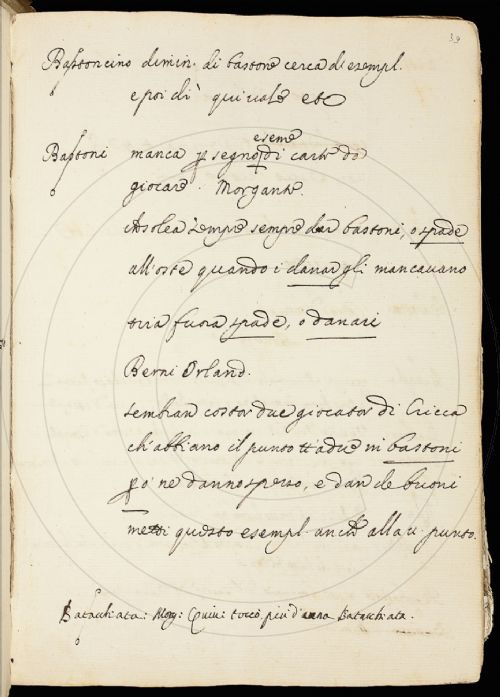 39
Bastoncino dimin. di bastone cerca di esempl.
e poi di' qui vale etc
Bastoni manca p segno di carte da
eseme
giocare. Morgante.
solea sempre sempre dar bastoni, o spade
all'oste quando i danar gli mancavano
tria fuora spade, o danari
Berni Orland.
Sembran costor due giocator di Cricca
ch'abbiano il punto tt adue in bastoni
po' ne danno spesso, e dan de buoni
metti questo esempl. anche alla u. punto.
Batacchiata: Morg: Quivi toccò piu d'una Batacchiata.